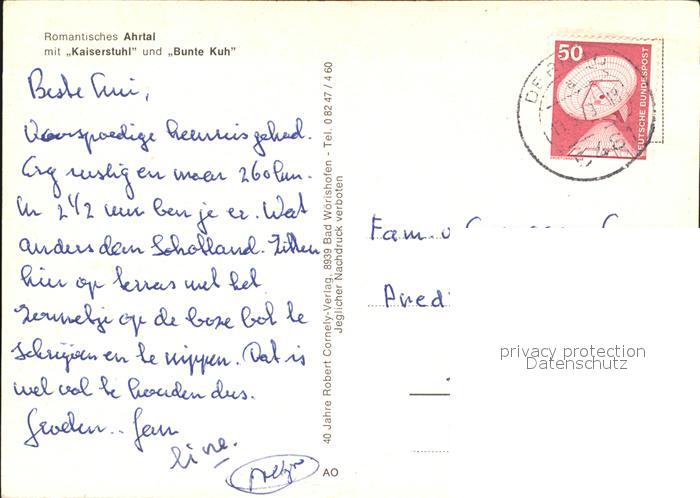 Romantisches Ahrtal
mit „Kaiserstuhl" und „Bunte Kuh"
Beste
Voorspoedige heenreis gehad.
Erg rustig en maar 260 km.
In 2 1/2 uur ben je er. Wat
anders dan Schotland. Zitten
hier op terras met het
zonnetje op de boze bol te
schrijven en te nippen. Dat is
wel vol te houden dus.
Groeten..
40 Jahre Robert Cornely-Verlag, 8939 Bad Wörishofen - Tel. 0 82 47 / 4 60
Jeglicher Nachdruck verboten
AO
50
DEUTSCHE BUNDESPOST
Fam.
Pred
privacy protection
Datenschutz